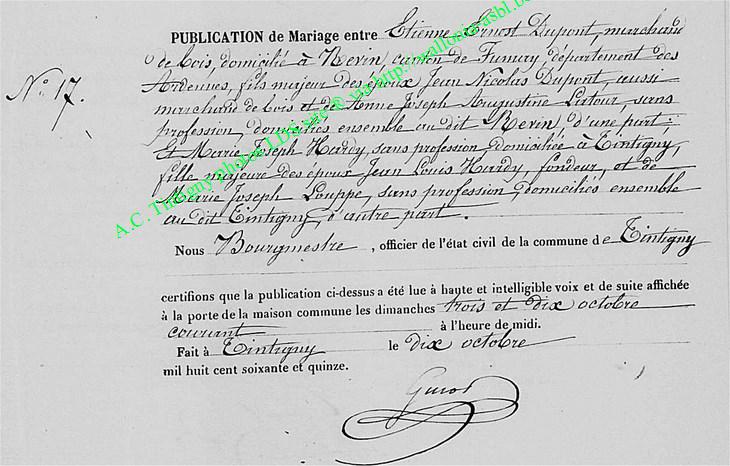 PUBLICATION de Mariage entre Etienne Ernest Dupont, marchand
de bois, domicilié à Revin, canton de Fumay, département des
Ardennes, fils majeur des époux Jean Nicolas Dupont, aussi
marchand de bois et de Anne Joseph Augustine Latour, sans
profession, domiciliés ensemble au dit Revin, d'une part;
Et Marie Joseph Hardy, sans profession domiciliée à Tintigny,
fille majeure des époux Jean Louis Hardy, fondeur, et de
Marie Joseph Louppe, sans profession, domiciliés ensemble
au dit Tintigny, d'autre part.
N° 17.
Nous Bourgmestre, officier de l'état civil de la commune de Tintigny
certifions que la publication ci-dessus a été lue à haute et intelligible voix et de suite affichée
à la porte de la maison commune les dimanches trois et dix octobre
courant à l'heure de midi.
Fait à Tintigny le dix octobre
mil huit cent soixante et quinze.
A.C. Tintigny photo LDS via http://wallonia-asbl.b